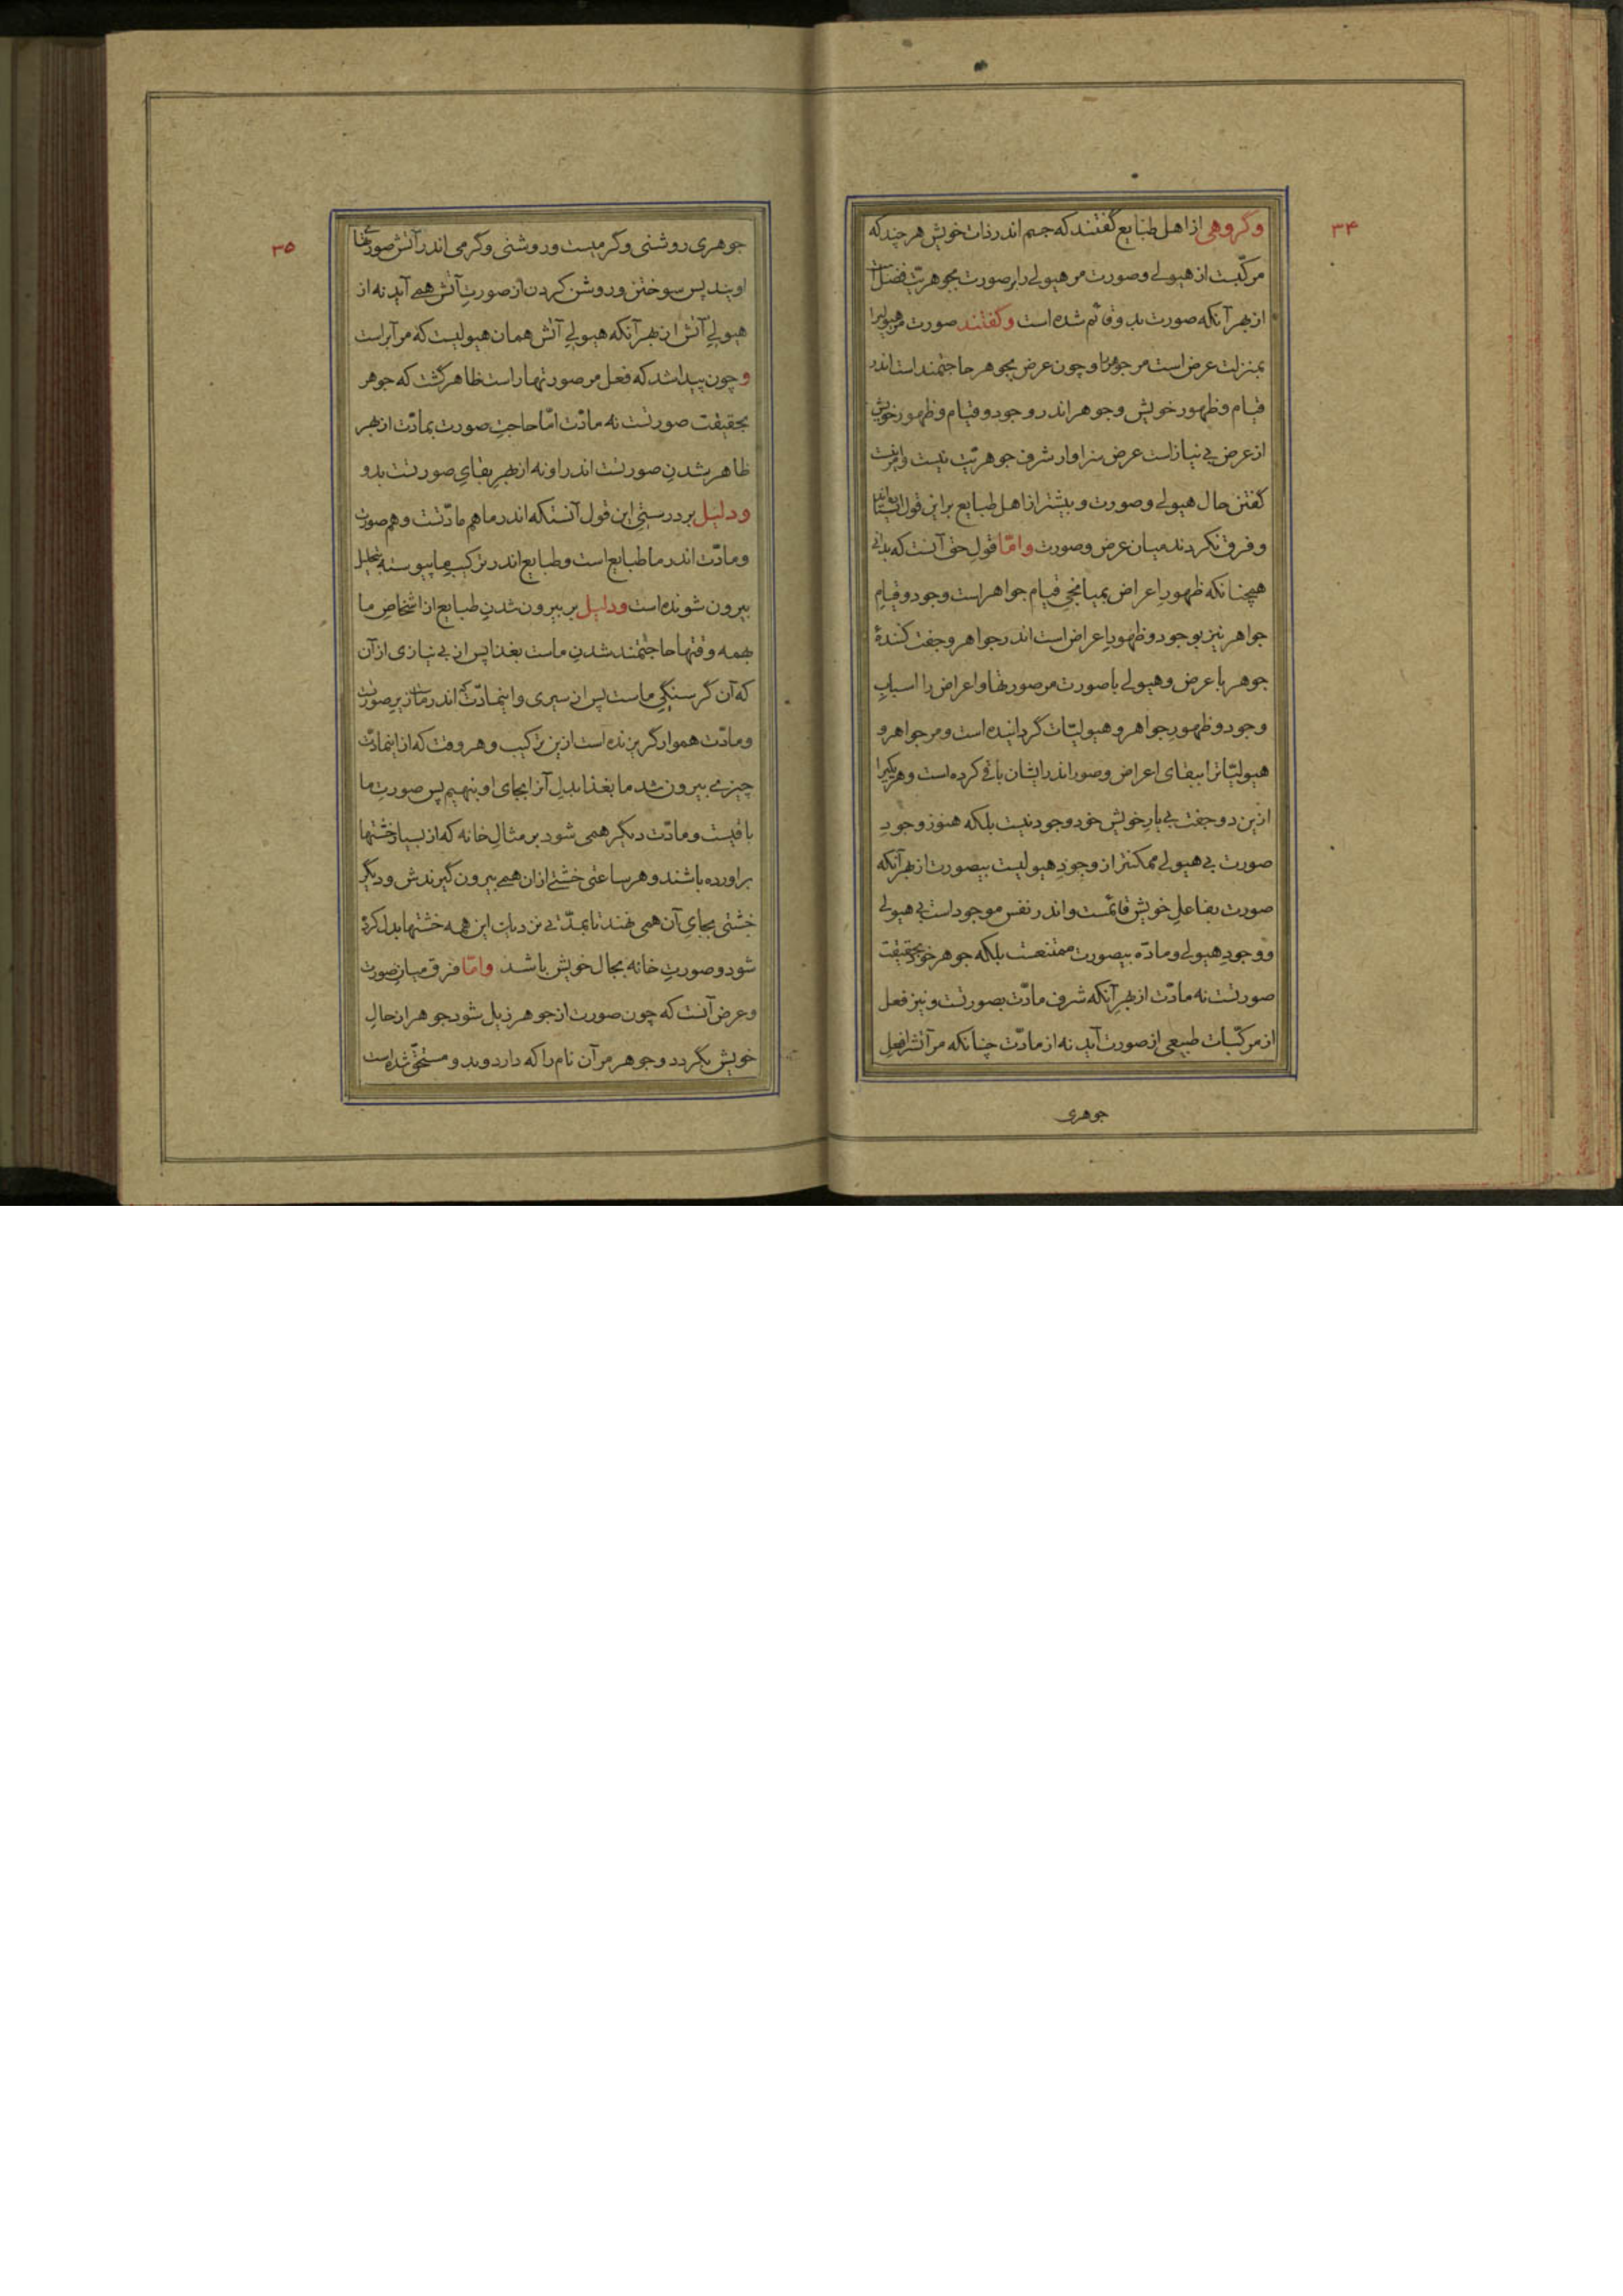 ۳۴
وگروهی از اهل طبایع گفتند که جسم اندر ذات خویش هر چند که
مرکبست از هیولے وصورت مر هیولے را بر صورت بجوهریّت فضل است
از بهر آنکه صورت بدو قائم شده است وگفتند صورت مر هیولیرا
بمنزلت عرض است مر جوهر را وچون عرض بجوهر حاجتمند است اندر
قیام وظهور خویش وجوهر اندر وجود وقیام وظهور خویش
از عرض بے نیاز است عرض سزاوار شرف جوهریّت نیست واینست
گفتن حال هیولے وصورت وبیشتر از اهل طبایع براین قول
وفرق نکردند میان عرض وصورت وامّا قولِ حق آنست که بدانی
همچنانکه ظهورِ اعراض بمیانجیِ قیام جواهر است وجود وقیامِ
جواهر نیز بوجود وظهورِ اعراض است اندر جواهر وجفت کنندهٔ
جوهر با عرض وهیولے با صورت مر صورتها واعراض را اسبابِ
وجود وظهورِ جواهر وهیولیّات گردانیده است ومر جواهر و
هیولیّاترا ببقای اعراض وصور اندر ایشان باقے کرده است وهر یکیرا
ازین دو جفت بے یارِ خویش خود وجود نیست بلکه هنوز وجودِ
صورت بے هیولے ممکنتر از وجودِ هیولیست بیصورت از بهر آنکه
صورت بفاعلِ خویش قائمست واندر نفس موجود است بے هیولے
ووجودِ هیولے ومادّه بیصورت ممتنعست بلکه جوهر خود بحقیقت
صورتست نه مادّت از بهرِ آنکه شرف مادّت بصورتست ونیز فعل
از مرکّبات طبیعی از صورت آید نه از مادّت چنانکه مر آتش را فعلِ
جوهری
۳۵
جوهری روشنی وگرمیست وروشنی وگرمی اندر آتش صورتهای
اویند پس سوختن وروشن کردن از صورتِ آتش همے آید نه از
هیولےِ آتش از بهر آنکه هیولےِ آتش همان هیولیست که مر آبراست
وچون پیدا شد که فعل مر صورتهاراست ظاهر گشت که جوهر
بحقیقت صورتست نه مادّت امّا حاجتِ صورت بمادّت از بهر
ظاهر شدنِ صورتست اندر او نه از بهرِ بقایِ صورتست بدو
ودلیل بر درستیِ این قول آنستکه اندر ما هم مادّتست وهم صورت
ومادّت اندر ما طبایع است وطبایع اندر ترکیبِ ما پیوسته بتحلیل
بیرون شونده است ودلیل بر بیرون شدنِ طبایع از اشخاصِ ما
بهمه وقتها حاجتمند شدنِ ماست بغذا پس از بے نیازی از آن
که آن گرسنگیِ ماست پس از سیری واینمادّت که اندر ماست زیرِ صورت
ومادّت هموار گریزنده است ازین ترکیب وهر وقت که از اینمادّت
چیزے بیرون شد ما بغذا بدلِ آنرا بجای او بنهیم پس صورتِ ما
باقیست ومادّت دیگر همی شود بر مثالِ خانه که از بسیار خشتها
براورده باشند وهر ساعتی خشتے از ان همے بیرون گیرندش ودیگر
خشتی بجایِ آن همی نهند تا بمدّتے نزدیک این همه خشتها بدل کرده
شود وصورتِ خانه بحال خویش باشد وامّا فرق میانِ صورت
وعرض آنست که چون صورت از جوهر زایل شود جوهر از حالِ
خویش بگردد وجوهر مر آن نام را که دارد وبدو مستحق شده است